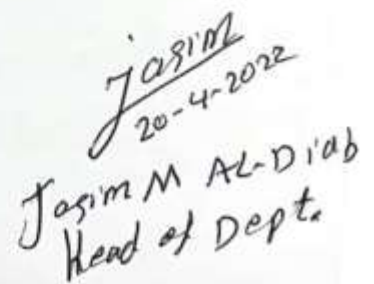 jasim
20-4-2022
Jasim M AL-Diab
Head of Dept.